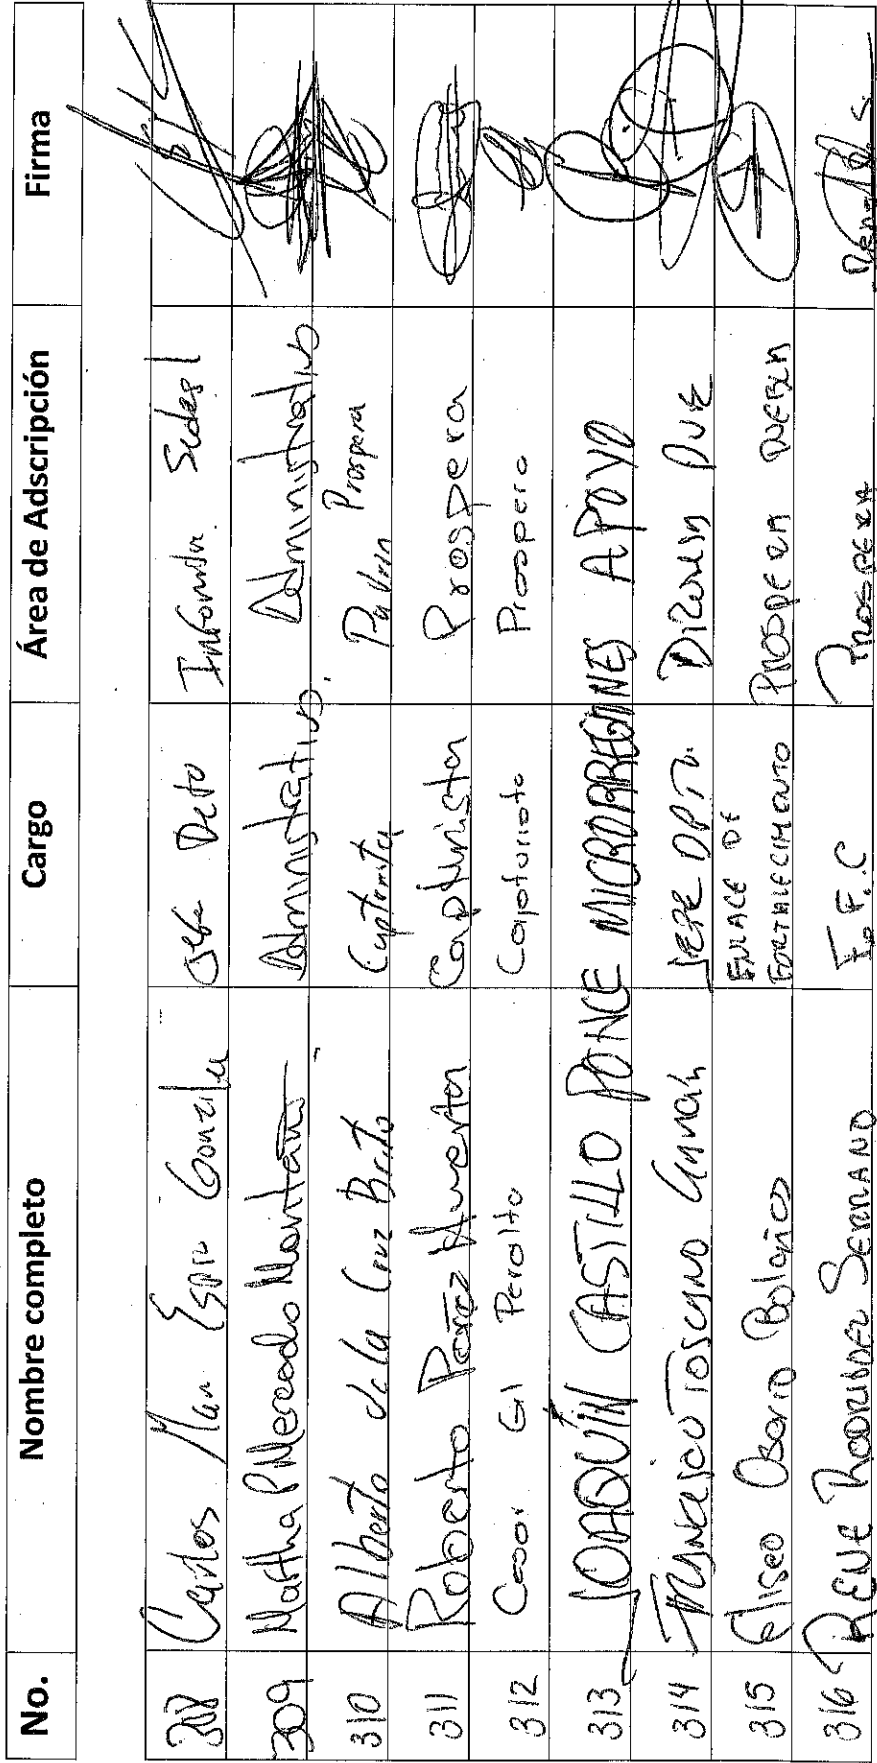 No. Nombre completo Cargo Área de Adscripción Firma
308 Carlos Gonzalez Jefe Depto Informática Sedesol
309 Martha P Mercado Montaño Administrativo. Administrativo
310 Alberto de la Cruz Brito Capturista Prospera
311 Roberto Pérez Huerta Capturista Prospera
312 Cesar Gil Peralta Capturista Prospera
313 JOAQUÍN CASTILLO PONCE MICRORREGIONES APOYO
314 Francisco Toscano JEFE DPTO.
315 Eliseo Osorio Bolaños ENLACE DE FORTALECIMIENTO PROSPERA PUEBLA
316 RENE RODRIGUEZ SERRANO E.F.C PROSPERA